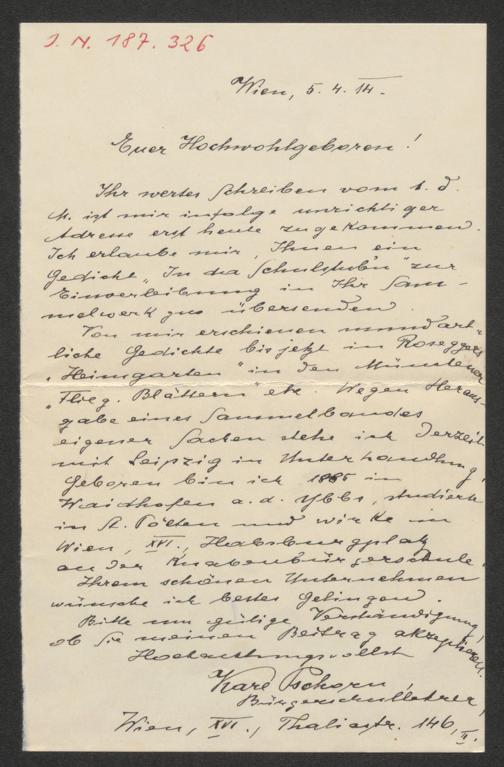 J. N. 187.326
Wien, 5. 4. 14.
Euer Hochwohlgeboren!
Ihr wertes Schreiben vom 1. d.
M. ist mir infolge unrichtiger
Adresse erst heute zugekommen.
Ich erlaube mir, Ihnen ein
Gedicht „In da Schulstub'n" zur
Einverleibung in Ihr Sam-
melwerk zu übersenden.
Von mir erschienen mundart-
liche Gedichte bis jetzt in Roseggers
„Heimgarten" in den Münchener
„Flieg. Blättern" etc. Wegen Heraus-
gabe eines Sammelbandes
eigener Sachen stehe ich derzeit
mit Leipzig in Unterhandlung.
Geboren bin ich 1885 in
Waidhofen a. d. Ybbs, studierte
in St. Pölten und wirke in
Wien, XVI., Habsburgplatz
an der Knabenbürgerschule.
Ihrem schönen Unternehmen
wünsche ich bestes Gelingen.
Bitte um gütige Verständigung,
ob Sie meinen Beitrag akzeptieren.
Hochachtungsvollst
Karl Pschorn,
Bürgerschullehrer,
Wien, XVI., Thaliastr. 146, II.